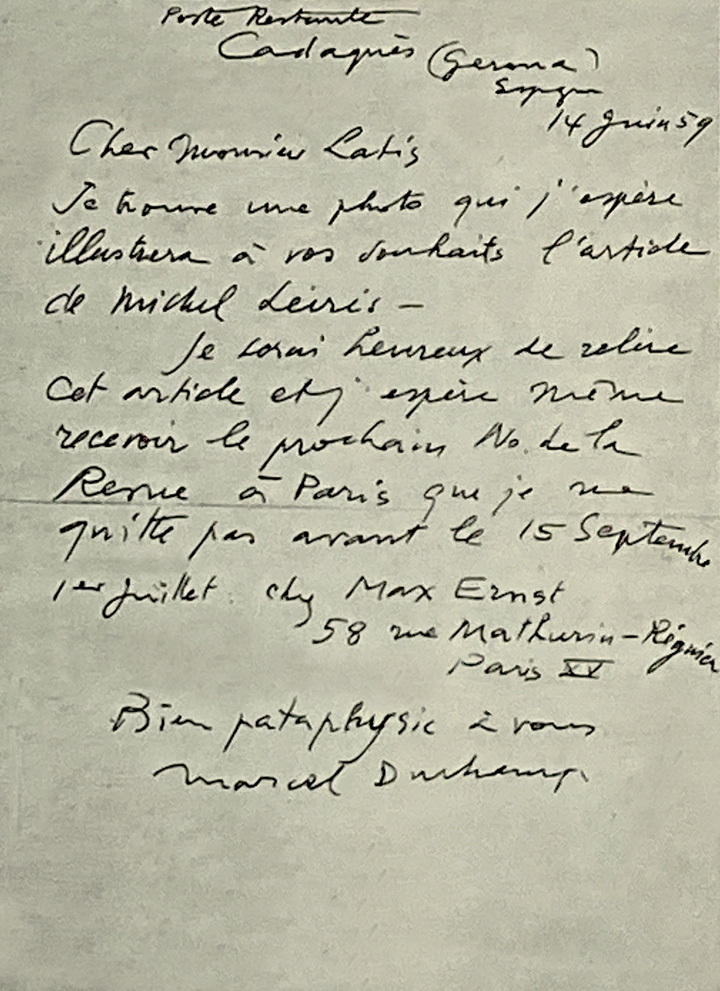 Poste Restante
Cadaquès (Gerona)
Espagne
14 Juin 59
Cher Monsieur Latis
Je trouve une photo qui j'espère
illustrera à vos souhaits l'article
de Michel Leiris —
Je serai heureux de relire
cet article et j'espère même
recevoir le prochain No. de la
Revue à Paris que je ne
quitte pas avant le 15 Septembre
1er Juillet : chez Max Ernst
58 rue Mathurin-Régnier
Paris XV
Bien pataphysic à vous
Marcel Duchamp